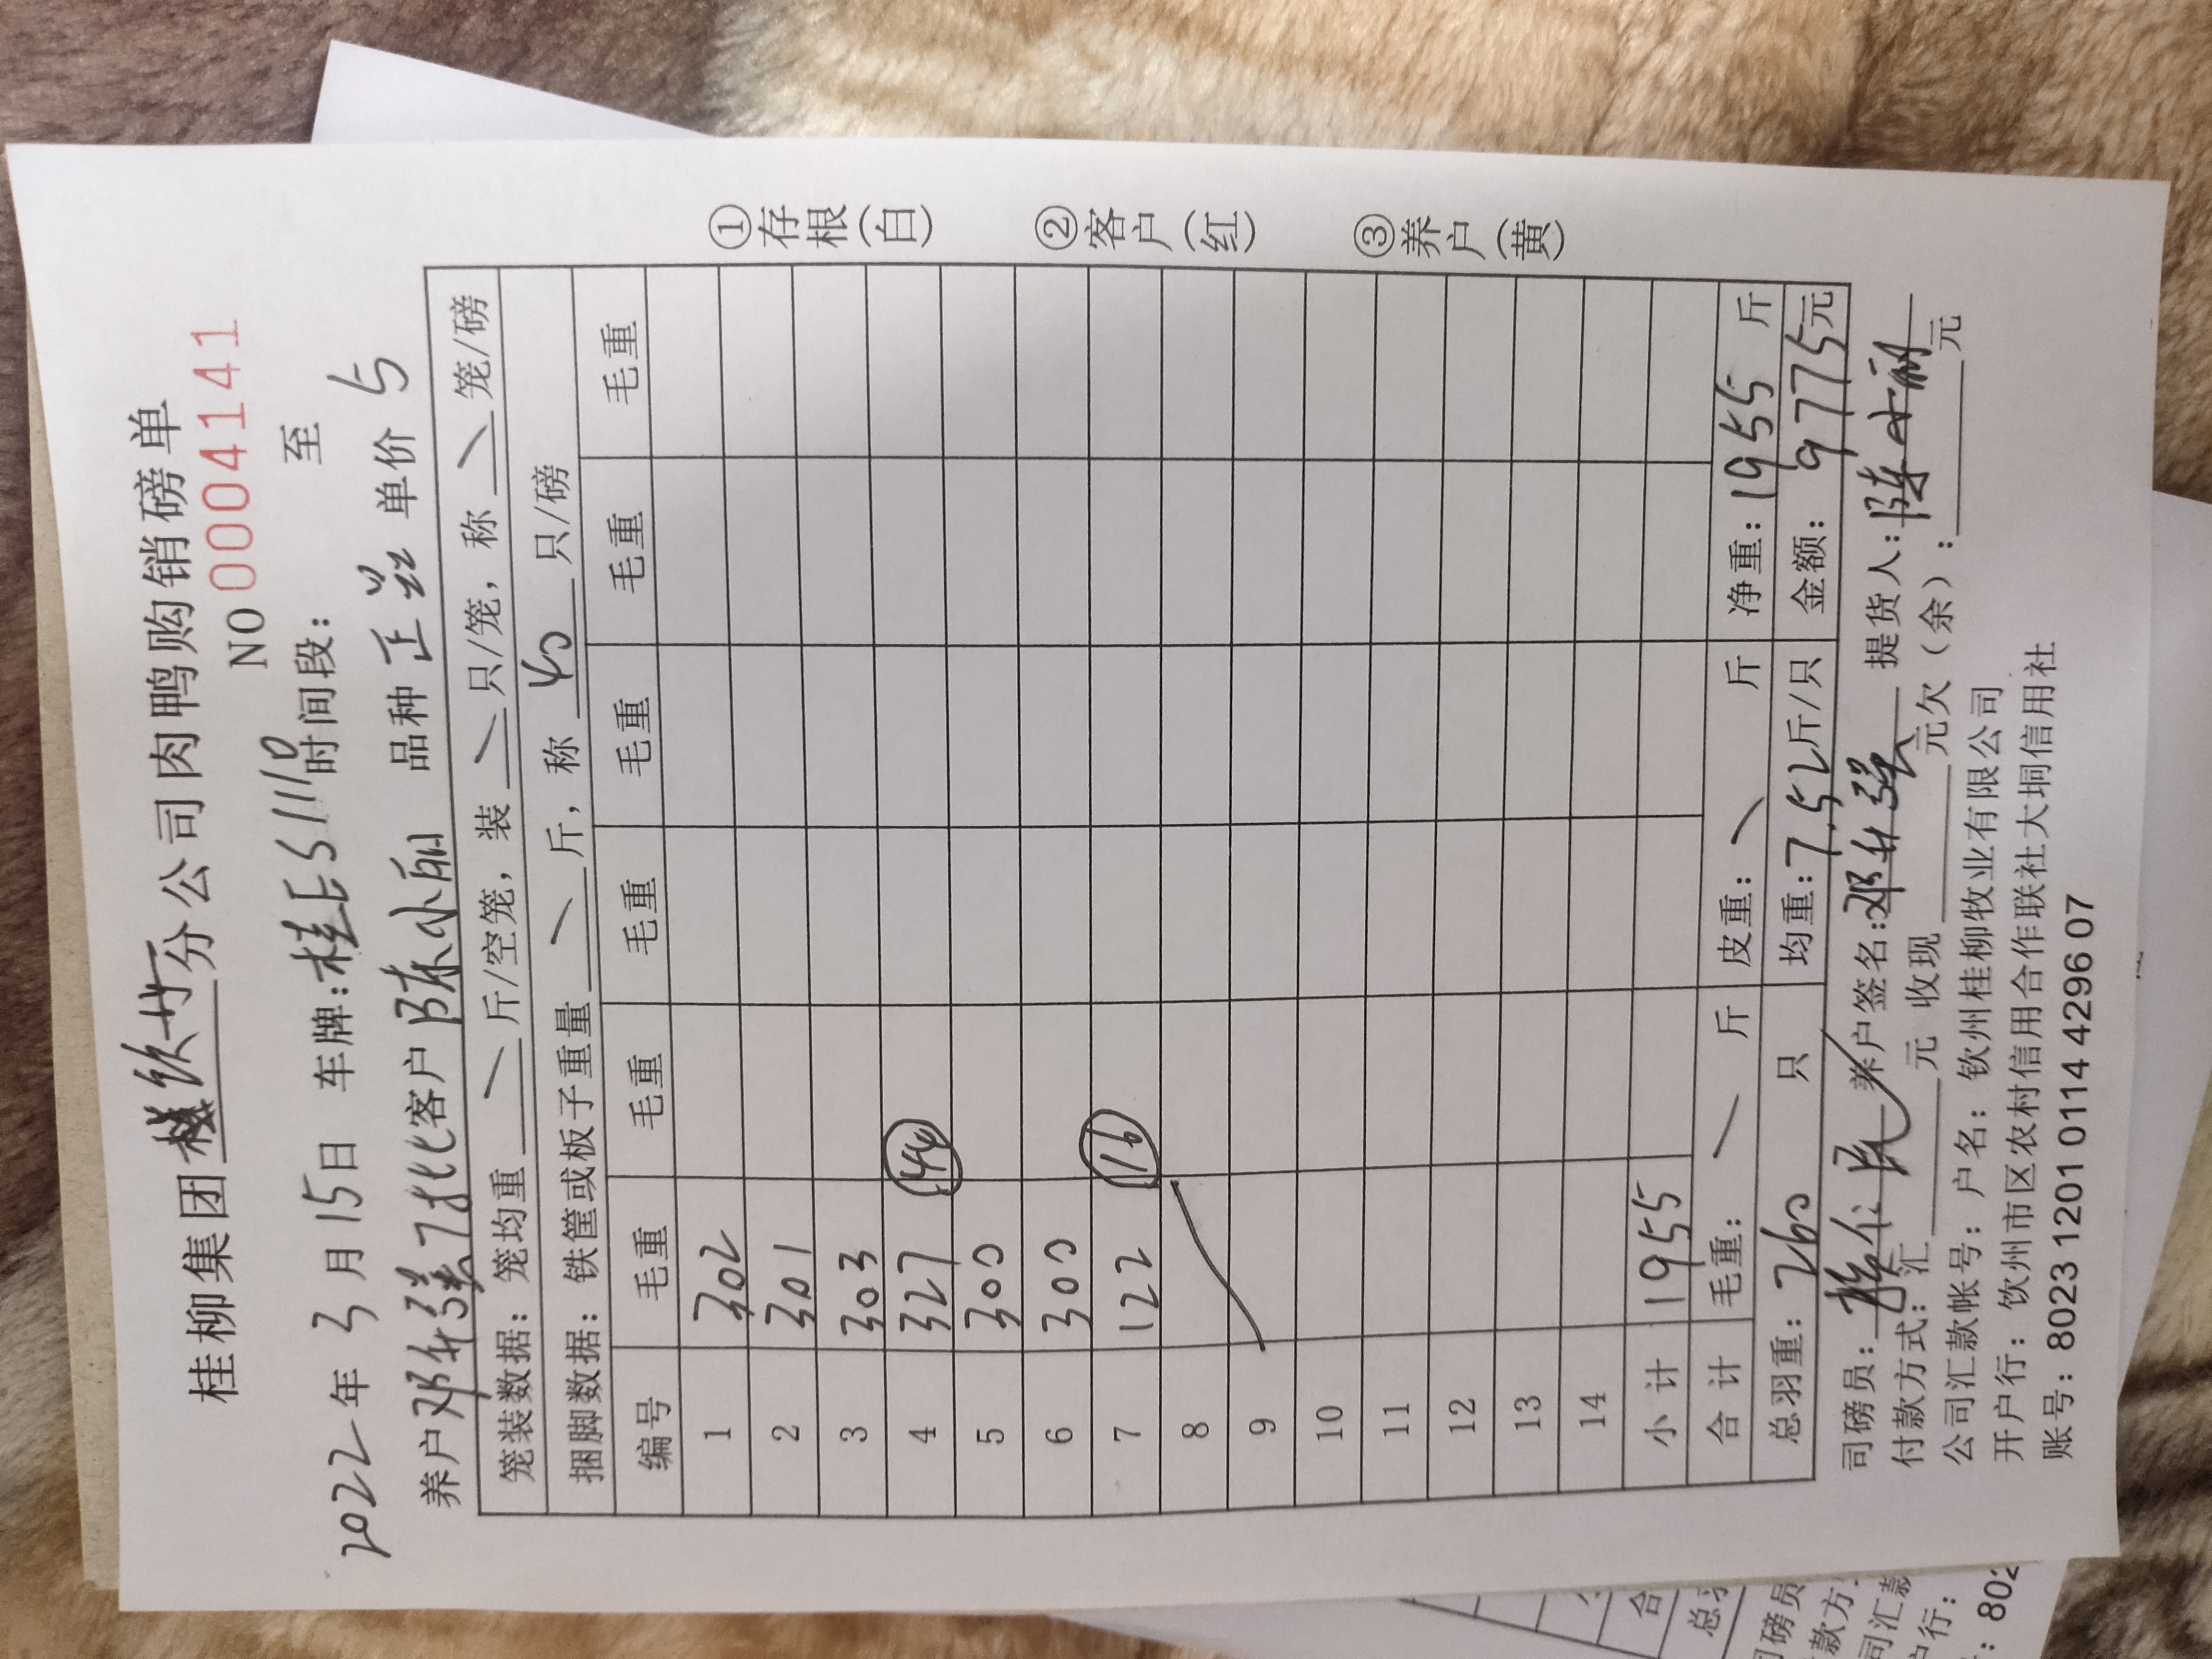 桂柳集团钦州分公司肉鸭购销磅单
NO 0004141
2022年 3月15日 车牌:桂E51110 时间段: 至
养户 邓升强 客户 陈小丽 品种 正 单价 5
笼装数据: 笼均重 / 斤/空笼, 装 / 只/笼, 称 / 笼/磅
捆脚数据: 铁筐或板子重量 / 斤, 称 40 只/磅
编号 毛重 毛重 毛重 毛重 毛重 毛重
1 302
2 301
3 303
4 327 44
5 300
6 300
7 122 16
8
9
10
11
12
13
14
小计 1955
合计 毛重: / 斤 皮重: / 斤 净重: 1955 斤
总羽重: 260 只 均重: 7.52斤/只 金额: 9775元
司磅员: 养户签名:邓升强 提货人:陈小丽
付款方式: 汇 元 收现 元欠(余): 元
公司汇款帐号: 户名: 钦州桂柳牧业有限公司
开户行: 钦州市区农村信用合作联社大垌信用社
账号: 8023 1201 0114 4296 07
①存根(白)
②客户(红)
③养户(黄)
合
总羽
司磅员
付款方式
公司汇款
户行:
: 802